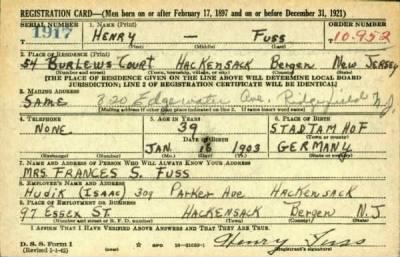 REGISTRATION CARD—(Men born on or after February 17, 1897 and on or before December 31, 1921)
SERIAL NUMBER 1. NAME (Print) ORDER NUMBER
1917 HENRY — FUSS 10.952
(First) (Middle) (Last)
2. PLACE OF RESIDENCE (Print)
54 BURLEWS COURT HACKENSACK BERGEN NEW JERSEY
(Number and street) (Town, township, village, or city) (County) (State)
[THE PLACE OF RESIDENCE GIVEN ON THE LINE ABOVE WILL DETERMINE LOCAL BOARD
JURISDICTION; LINE 2 OF REGISTRATION CERTIFICATE WILL BE IDENTICAL]
3. MAILING ADDRESS
SAME 820 Edgewater Ave, Ridgefield N.J.
[Mailing address if other than place indicated on line 2. If same insert word same]
4. TELEPHONE 5. AGE IN YEARS 6. PLACE OF BIRTH
NONE. 39 STADTAMHOF
DATE OF BIRTH (Town or county)
JAN. 16 1903 GERMANY
(Exchange) (Number) (Mo.) (Day) (Yr.) (State or country)
7. NAME AND ADDRESS OF PERSON WHO WILL ALWAYS KNOW YOUR ADDRESS
MRS. FRANCES S. FUSS
8. EMPLOYER'S NAME AND ADDRESS
HUDIK (ISAAC) 309 PARKER AVE HACKENSACK
9. PLACE OF EMPLOYMENT OR BUSINESS
97 ESSEX ST. HACKENSACK BERGEN N.J
(Number and street or R. F. D. number) (Town) (County) (State)
I AFFIRM THAT I HAVE VERIFIED ABOVE ANSWERS AND THAT THEY ARE TRUE.
D. S. S. Form 1 GPO Henry Fuss
(Revised 1-1-42) (Registrant's signature)